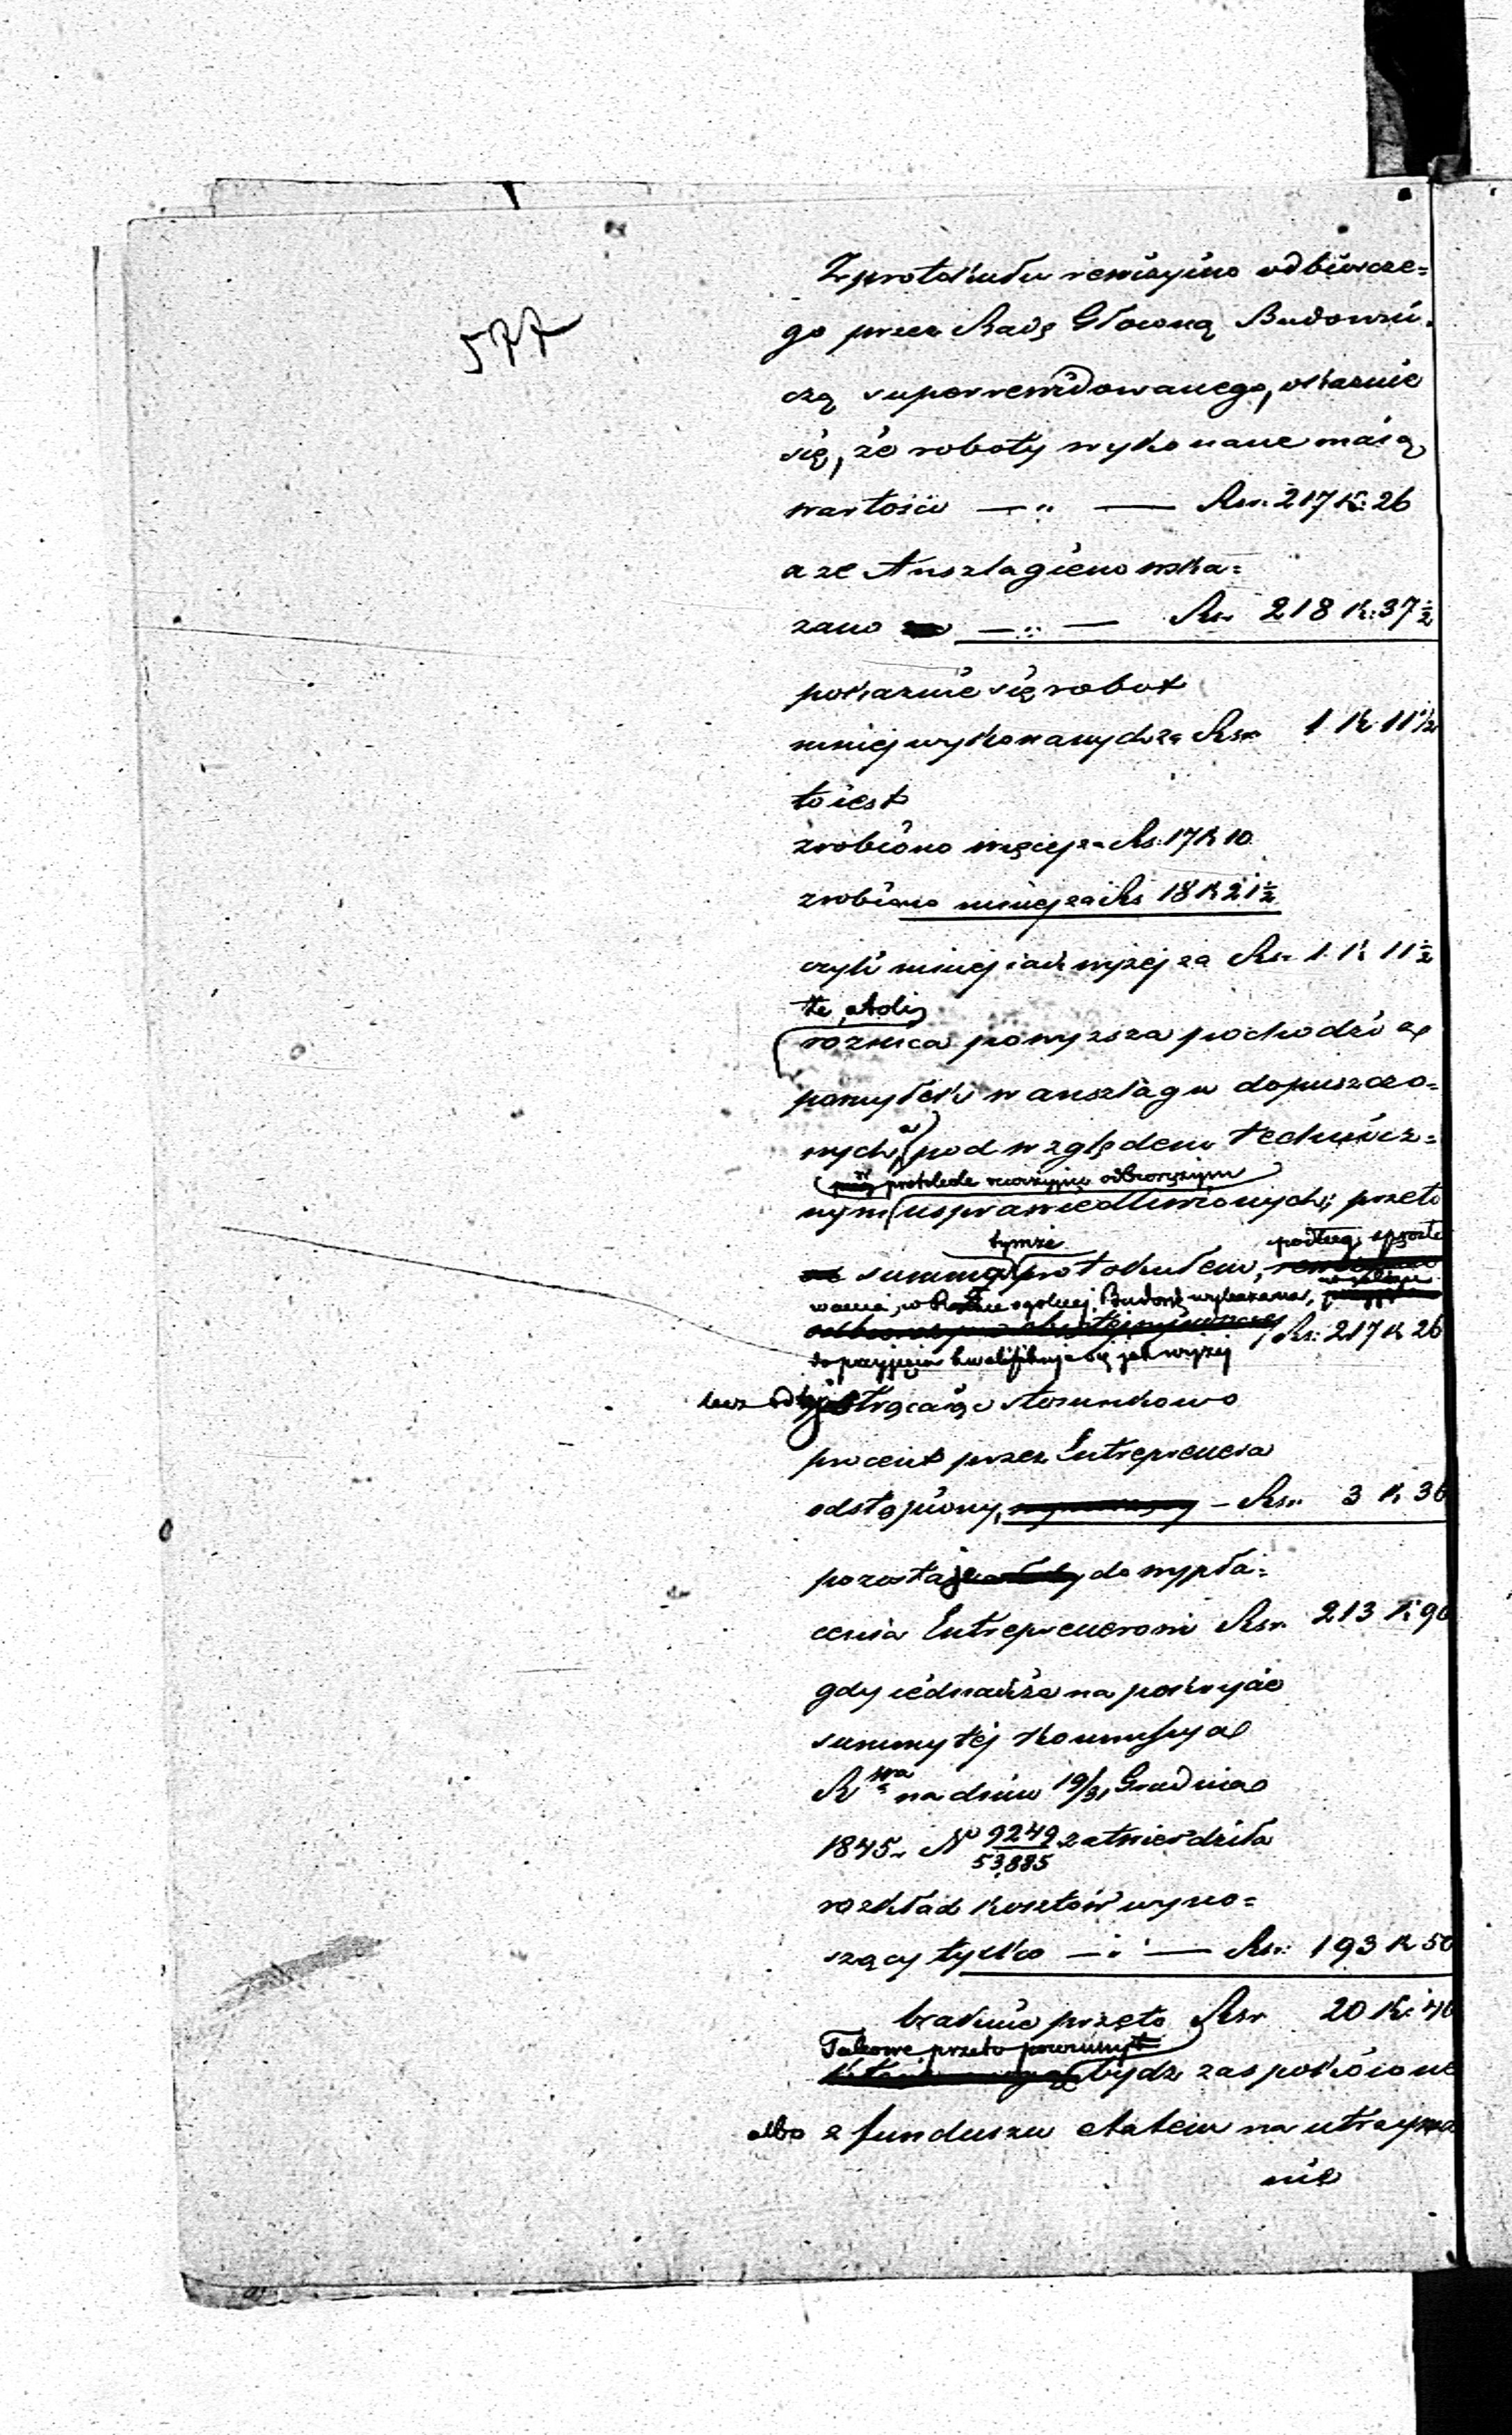 577
Z protokułu rewizyino odbiorcze=
go przez Radę Głowną Budowni=
czą superrewidowanego, okazuie
się, że roboty wykonane maią
wartości — „ — Rsr. 217 K: 26
a że Anszlagiem wska=
zano — „ — Rsr 218 K: 37½
pokazuie się robot
mniej wykonanych za Rsr 1 K 11½
to iest
zrobiono więcej za Rs: 17 K 10
zrobiono mniej za Rs 18 K 21½
czyli mniej iak wyżej za Rsr 1 K 11½
roznica powyzsza pochodzi z
pomyłek w anszlagu dopuszczo=
nych, a pod względem technicz=
w protokule rewizyino odbiorczym
nym usprawiedliwionych; przeto
tymże podług
summa protokułem,
wania, w Radzie ogolnej Budow: wykazana,
Rs: 217 K 26
do przyjęcia kwalifikuje się jak wyżej
lecz
strącaiąc stosunkowo
procent przez Entreprenera
odstąpiony, — Rsr. 3 K 36
pozostaje do wypła=
cenia Entreprenerowi Rsr. 213 K 90
gdy iednakże na pokrycie
summy téj Kommissya
R wa na dniu 19/31 Grudnia
1845 r. N° 9249/53,885 zatwierdziła
rozkład kosztów wyno=
szący tylko — „ — Rsr: 193 K 50
braknie przeto Rsr 20 K: 40
Takowe przeto powinny
bydź zaspokóione
albo z funduszu etatem na utrzyma
nie